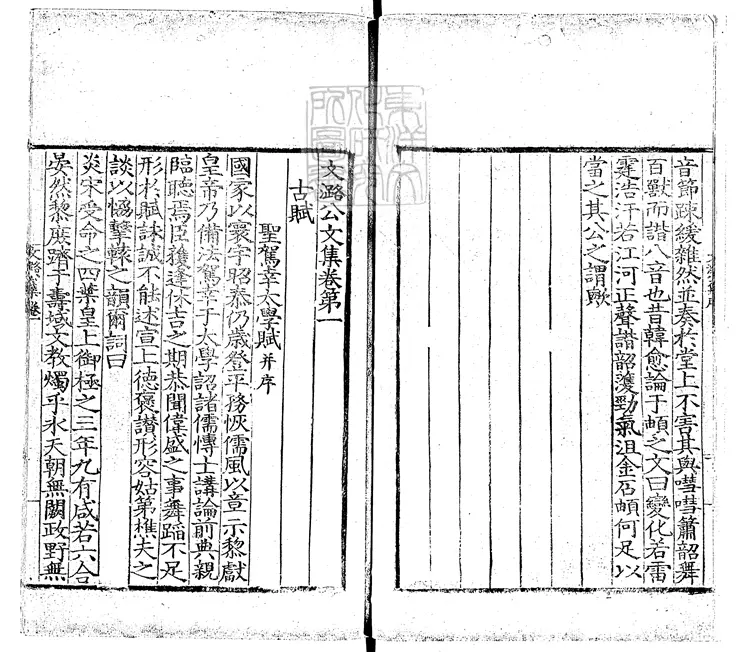 音節踈緩雜然並奏於堂上不害其與嘒嘒簫韶舞
百獸而諧八音也昔韓愈論于頔之文曰變化若雷
霆浩汗若江河正聲諧韶濩勁氣沮金石頔何足以
當之其公之謂歟
文潞公文集卷第一
古賦
聖駕幸太學賦并序
國家以寰宇昭泰仍歲登平務恢儒風以章示黎獻
皇帝乃備法駕幸于太學詔諸儒博士講論前典親
臨聽焉臣獲逢休吉之期恭聞偉盛之事舞蹈不足
形於賦詠誠不能述宣上德褒讃形容姑第樵夫之
談以恊擊轅之韻爾詞曰
炎宋受命之四葉皇上御極之三年九有咸若六合
晏然黎庶躋于壽域文教燭乎氷天朝無闕政野無
文潞集卷一